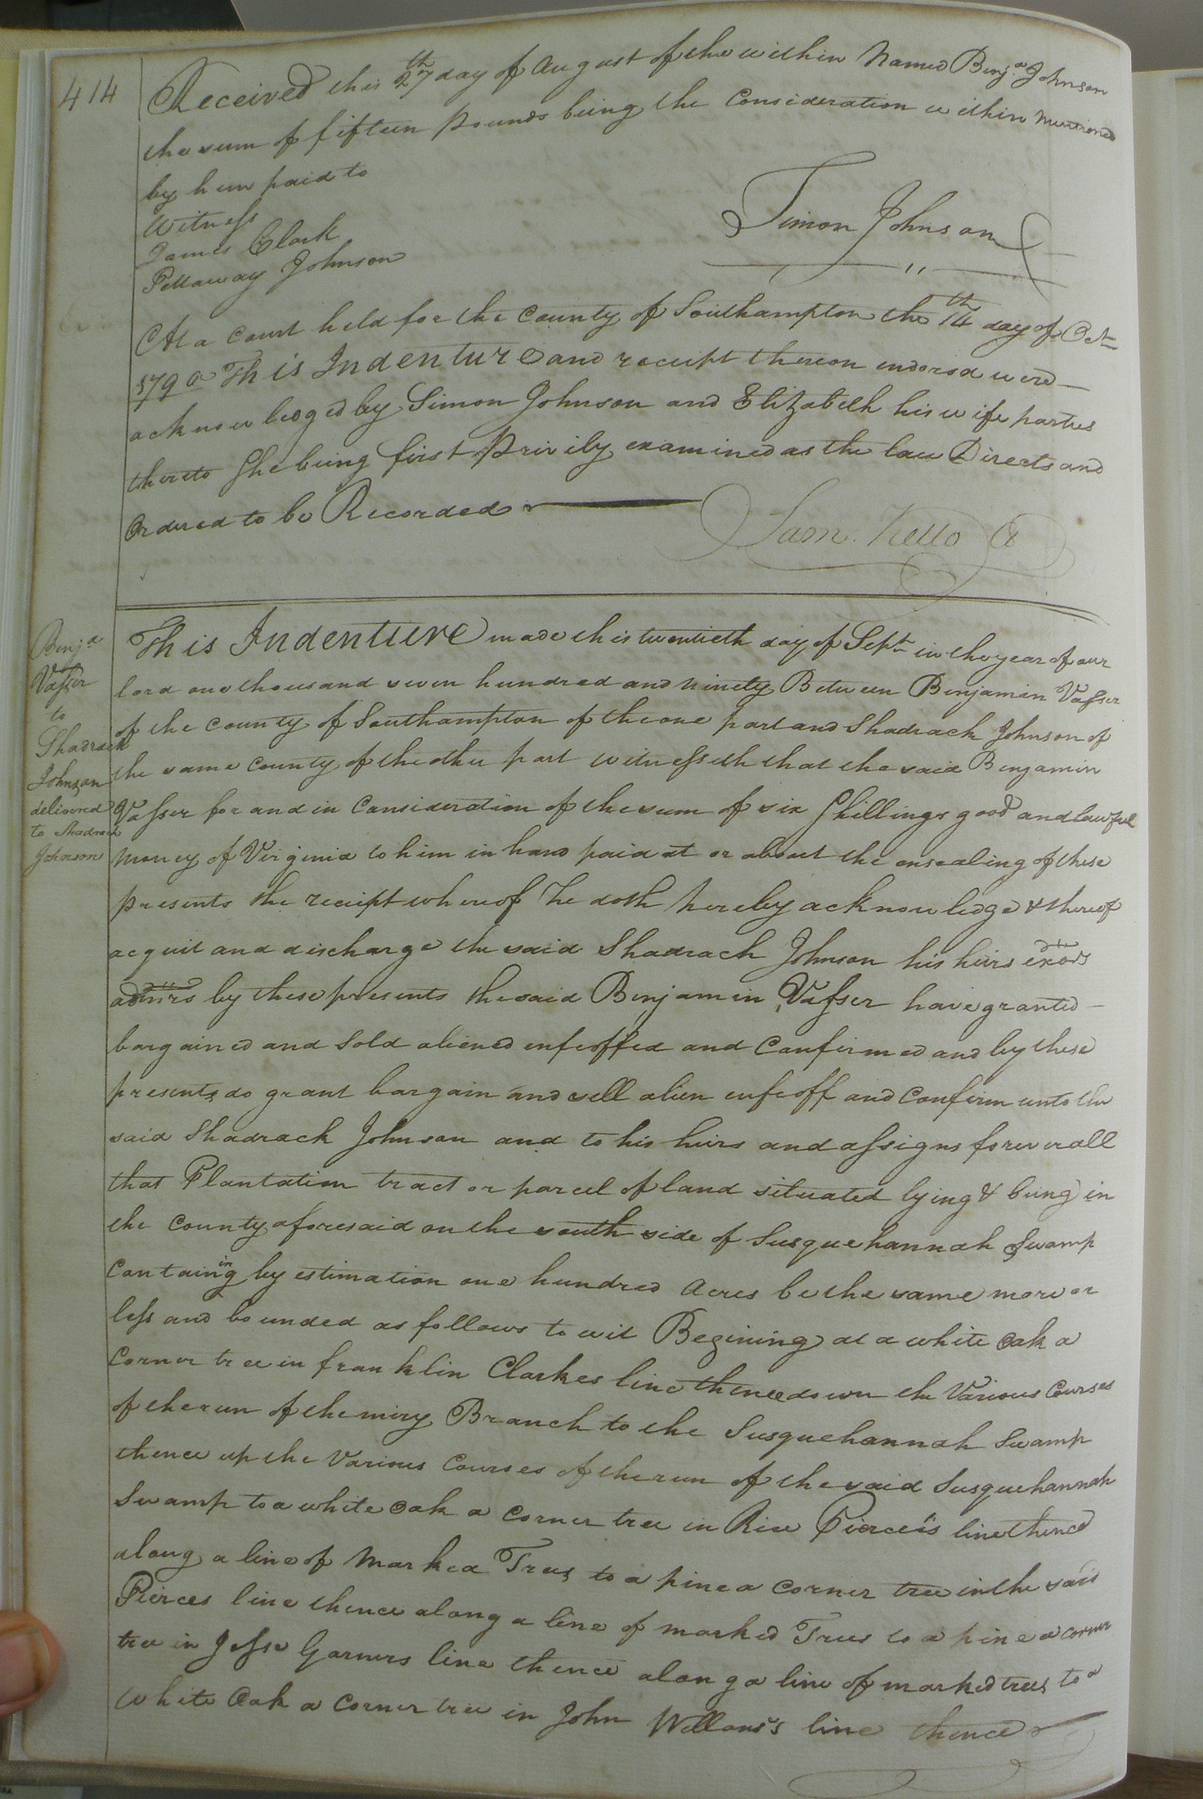 414
Received this 27th day of August of the within Named Benja Johnson
the sum of fifteen Pounds being the Consideration within mentioned
by him paid to
Witness
James Clark
Pettaway Johnson
Simon Johnson
At a Court held for the County of Southampton the 14th day of Oct
1790 This Indenture and receipt thereon endorsd were
acknowledged by Simon Johnson and Elizabeth his wife parties
thereto She being first Privily examined as the law Directs and
Ordered to be Recorded
Sam. Kello C
Benja
Vasser
to
Shadrack
Johnson
delivered
to Shadrack
Johnson
This Indenture made this twentieth day of Sept in the year of our
lord one thousand seven hundred and ninety Between Benjamin Vasser
of the County of Southampton of the one part and Shadrach Johnson of
the same County of the other part witnesseth that the said Benjamin
Vasser for and in Consideration of the sum of six Shillings good and lawful
money of Virginia to him in hand paid at or about the ensealing of these
presents the receipt whereof he doth hereby acknowledge & thereof
acquit and discharge the said Shadrach Johnson his heirs exors
admrs by these presents the said Benjamin Vasser have granted
bargained and Sold aliened enfeoffed and Confirmed and by these
presents do grant bargain and sell alien enfeoff and Confirm unto the
said Shadrack Johnson and to his heirs and assigns forever all
that Plantation tract or parcel of land situated lying & being in
the County aforesaid on the south side of Susquehannah Swamp
Containing by estimation one hundred Acres be the same more or
less and bounded as follows to wit Begining at a white Oak a
Corner tree in franklin Clarkes line thence down the Various Courses
of the run of the miry Branch to the Susquehannah Swamp
thence up the Various Courses of the run of the said Susquehannah
Swamp to a white Oak a Corner tree in Rice Pierce's line thence
along a line of Marked Trees to a pine a Corner tree in the said
Pierces line thence along a line of marked Trees to a pine a corner
tree in Jesse Garners line thence along a line of marked trees to a
White Oak a Corner tree in John Wellons's line thence